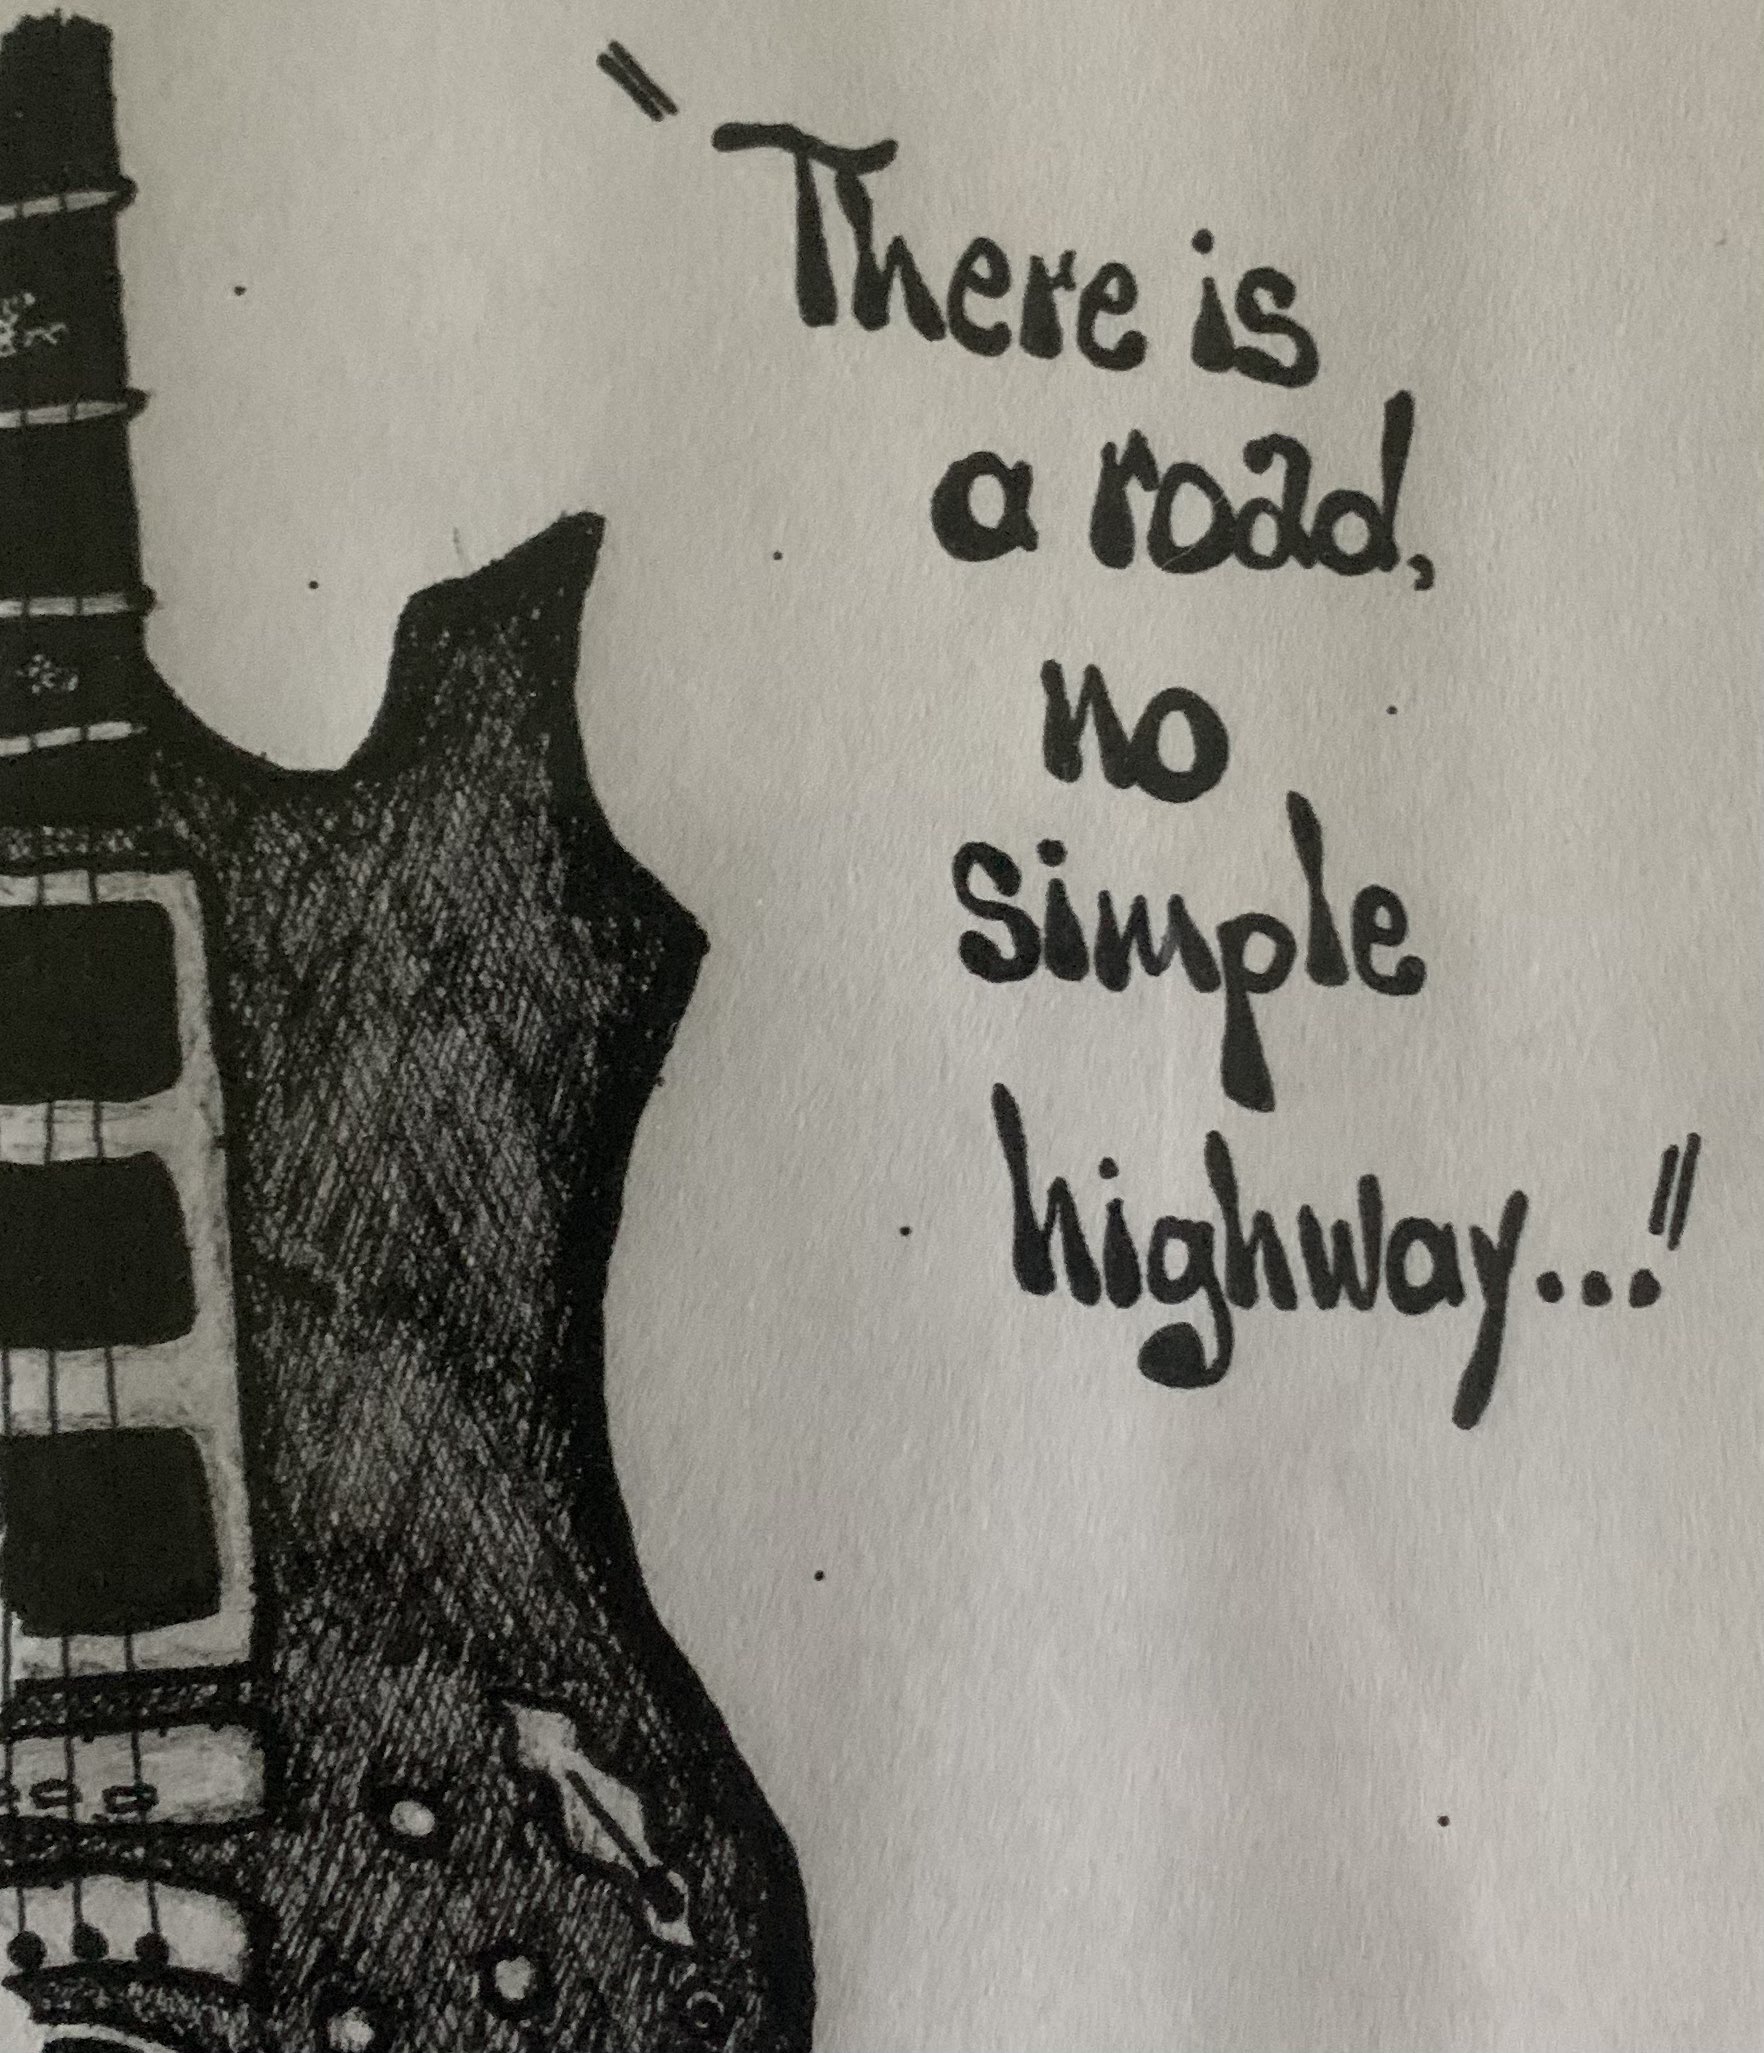 "There is
a road,
no
simple
highway..."